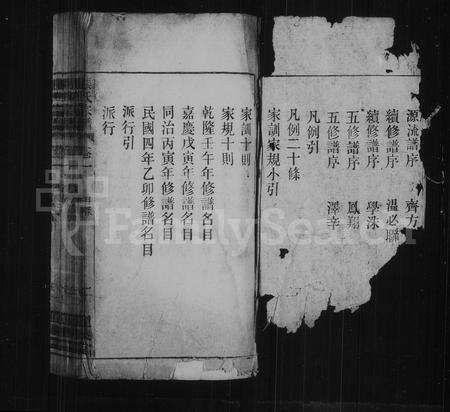 源流譜序 齊方
續修譜序 溫必
續修譜序 學洙
五修譜序 鳳翔
五修譜序 澤辛
凡例引
凡例二十條
家訓家規小引
家訓十則
家規十則
乾隆壬午年修譜名目
嘉慶戊寅年修譜名目
同治丙寅年修譜名目
民國四年乙卯修譜名目
派行引
派行
FamilySearch